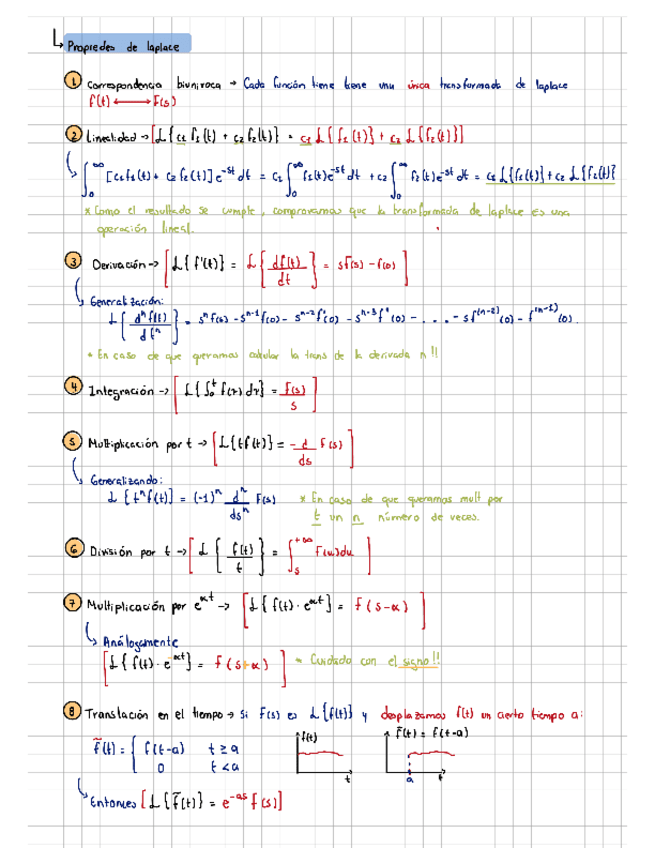 ↳ Propiedes de laplace
① Correspondencia biunivoca → Cada función tiene tiene una única transformada de laplace
f(t) ⟷ F(s)
② Linealidad → [L{c₁ f₁(t) + c₂ f₂(t)} = c₁ L{f₁(t)} + c₂ L{f₂(t)}]
↳ ∫₀^∞ [c₁f₁(t) + c₂f₂(t)] e^-st dt = c₁ ∫₀^∞ f₁(t)e^-st dt + c₂ ∫₀^∞ f₂(t)e^-st dt = c₁ L{f₁(t)} + c₂ L{f₂(t)}
* Como el resultado se cumple, comprovamos que la transformada de laplace es una
operación lineal.
③ Derivación → [L{f'(t)} = L{df(t)/dt} = sf(s) - f(0)]
↳ Generalización:
L{dⁿf(t)/dtⁿ} = sⁿ f(s) - sⁿ⁻¹ f(0) - sⁿ⁻² f'(0) - sⁿ⁻³ f''(0) - . . . - s f⁽ⁿ⁻²⁾(0) - f⁽ⁿ⁻¹⁾(0)
* En caso de que queramos calcular la trans de la derivada n!!
④ Integración → [L{∫₀ᵗ f(r) dr} = f(s)/s]
⑤ Multiplicación por t → [L{t f(t)} = -d/ds F(s)]
↳ Generalizando:
L{tⁿ f(t)} = (-1)ⁿ dⁿ/dsⁿ F(s) * En caso de que queramos mult por
t un n número de veces.
⑥ División por t → [L{f(t)/t} = ∫ₛ^+∞ F(u)du]
⑦ Multiplicación por e^αt → [L{f(t) · e^αt} = f(s-α)]
↳ Análogamente
[L{f(t) · e^-αt} = f(s+α)] * Cuidado con el signo!!
⑧ Translación en el tiempo → Si F(s) es L{f(t)} y desplazamos f(t) un cierto tiempo a:
f̃(t) = { f(t-a) t ≥ a
0 t < a
f(t)
t
f̃(t) = f(t-a)
a
t
↳ Entonces [L{f̃(t)} = e^-as f(s)]